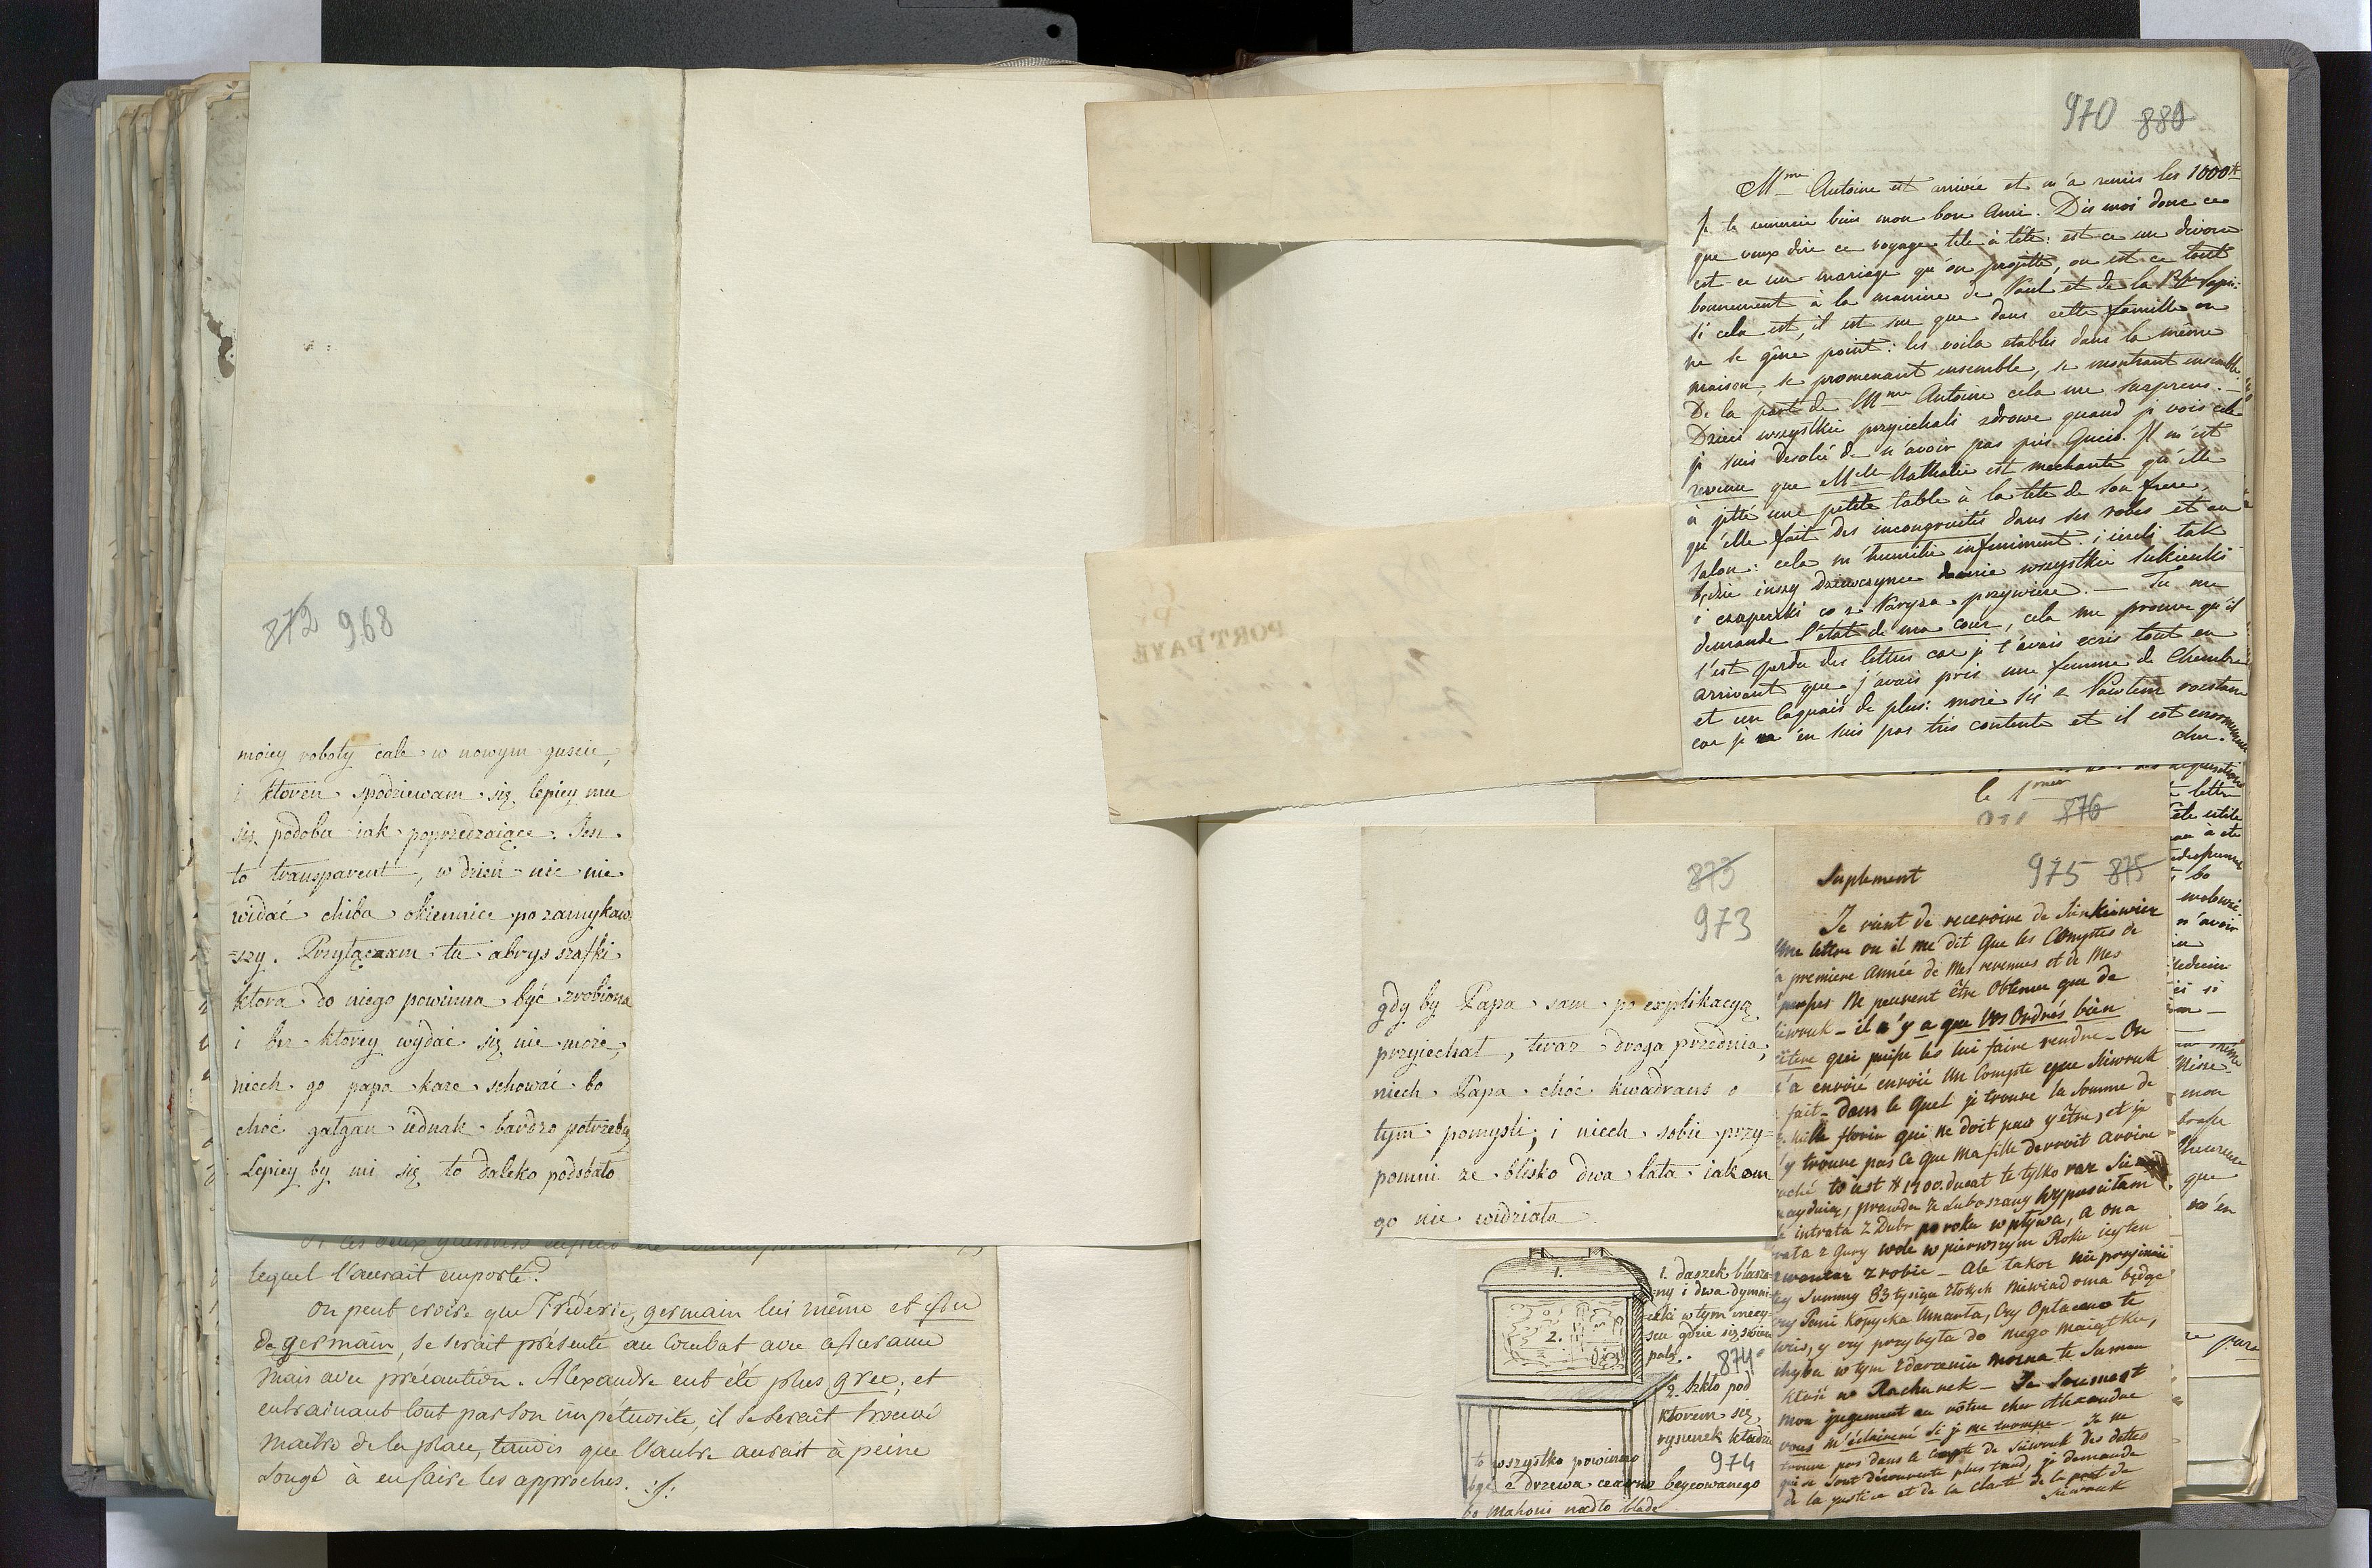 872 968
moiey roboty całe w nowym guscie,
i ktoren spodziewam się lepiey mu
się podoba iak poprzedzaiące. Jest
to transparent, w dzień nic nie
widać chiba okiennice pozamykaw-
=szy. Przyłączam tu abrys szafki
ktora do niego powinna być zrobiona
i bez ktorey wydać się nie może,
niech go papa każe schować bo
choć gałgan iednak bardzo potrzebny
Lepiey by mi się to daleko podobało
lequel l'aurait emporté?
On peut croire que Frédéric, germain lui même et issu
de germain, se serait présenté au combat avec assurance
mais avec précaution. Alexandre eut été plus grec; et
entrainant tout par son impétuosité, il se serait trouvé
maitre de la place, tandis que l'autre aurait à peine
songé à en faire les approches.
PORT PAYE
970 880
Mme Antoine est arrivée et m'a remis les 1000#
Je te remercie bien mon bon Ami. Dis moi donc ce
que veux dire ce voyage tete à tête: est-ce un divorce
est-ce un mariage qu'on projette, ou est ce tout
bonnement à la maniere de Paul et de la Pss Sapie:
si cela est, il est sur que dans cette famille on
ne se gêne point: les voila etablis dans la même
maison, se promenant ensemble, se montrant ensemble.
De la part de Mme Antoine cela me surprens.
Dzieci wszystkie przyiechali zdrowe quand je vois cela
je suis desolée de n'avoir pas pris Gucio. Il m'est
revenu que Melle Nathalie est mechante qu'elle
à jetté une petite table à la tete de son frere,
qu'elle fait des incongruités dans ses robes et au
salon: cela m'humilie infiniment: iesli tak
będzie inszey dziewczynce damie wszystkie sukienki
i czapeczki co z Paryza przywiozę. — Tu me
demande l'état de ma cour, cela me prouve qu'il
s'est perdu des lettres car je t'avais ecris tout en
arrivant que j'avais pris une femme de Chambre
et un laquais de plus: może się z Pawłem rozstane
car je n'en suis pas très contente et il est enormement
cher.
le 1
876
873
973
gdy by Papa sam po explikacyą
przyiechał, teraz droga przednia,
niech Papa choć kwadrans o
tym pomysli; i niech sobie przy=
pomni ze blisko dwa lata iakem
go nie widziała.
1.
2.
1. daszek blasza-
ny i dwa dymni-
czki w tym miey-
scu gdzie się świece
palą.
874
2. Szkło pod
ktorem się
rysunek kładzie
974
to wszystko powinno
być z drzewa czarno beycowanego
bo Mahoni nadto blade
Suplement 975 875
Je vient de recevoire de Sienkiewicz
Une lettre ou il me dit que les Comptes de
la premiere Année de Mes revenues et de Mes
ne peuvent être Obtenue que de
Siwruk - il n'y a que Vos Ordrés bien
qui puisse les lui faire rendre - On
m'a envoié envoié Un Compte que Siwruk
fait - dans le quel je trouve la Somme de
mille florin qui ne doit pas y être, et je
n'y trouve pas ce que Ma fille devroit avoire
to iest # 1100. ducat te tylko raz
prawda ze Luboszany Wypuscitam
intrata z Dubr po roku wpływa, a ona
z Gury wole w pierwszym Roku
zrobic - Ale takoz nie przyimuie
Summy 83 tysiąca złotych niewiadoma będąc
czy Pani Kopycka Umarła, Czy Opłacono te
y czy przybyła do niego Maiątku,
chyba w tym zdarzeniu mozna te Summe
na Rachunek - Je Soumest
mon jugement au vôtre cher Alexandre
vous m'éclaireré Si je me trompe - Je ne
trouve pas dans le Compte de Siewruk des dettes
qui se sont découverte plus tard, je demande
de la justice et de la clarté de la part de
Siewruk